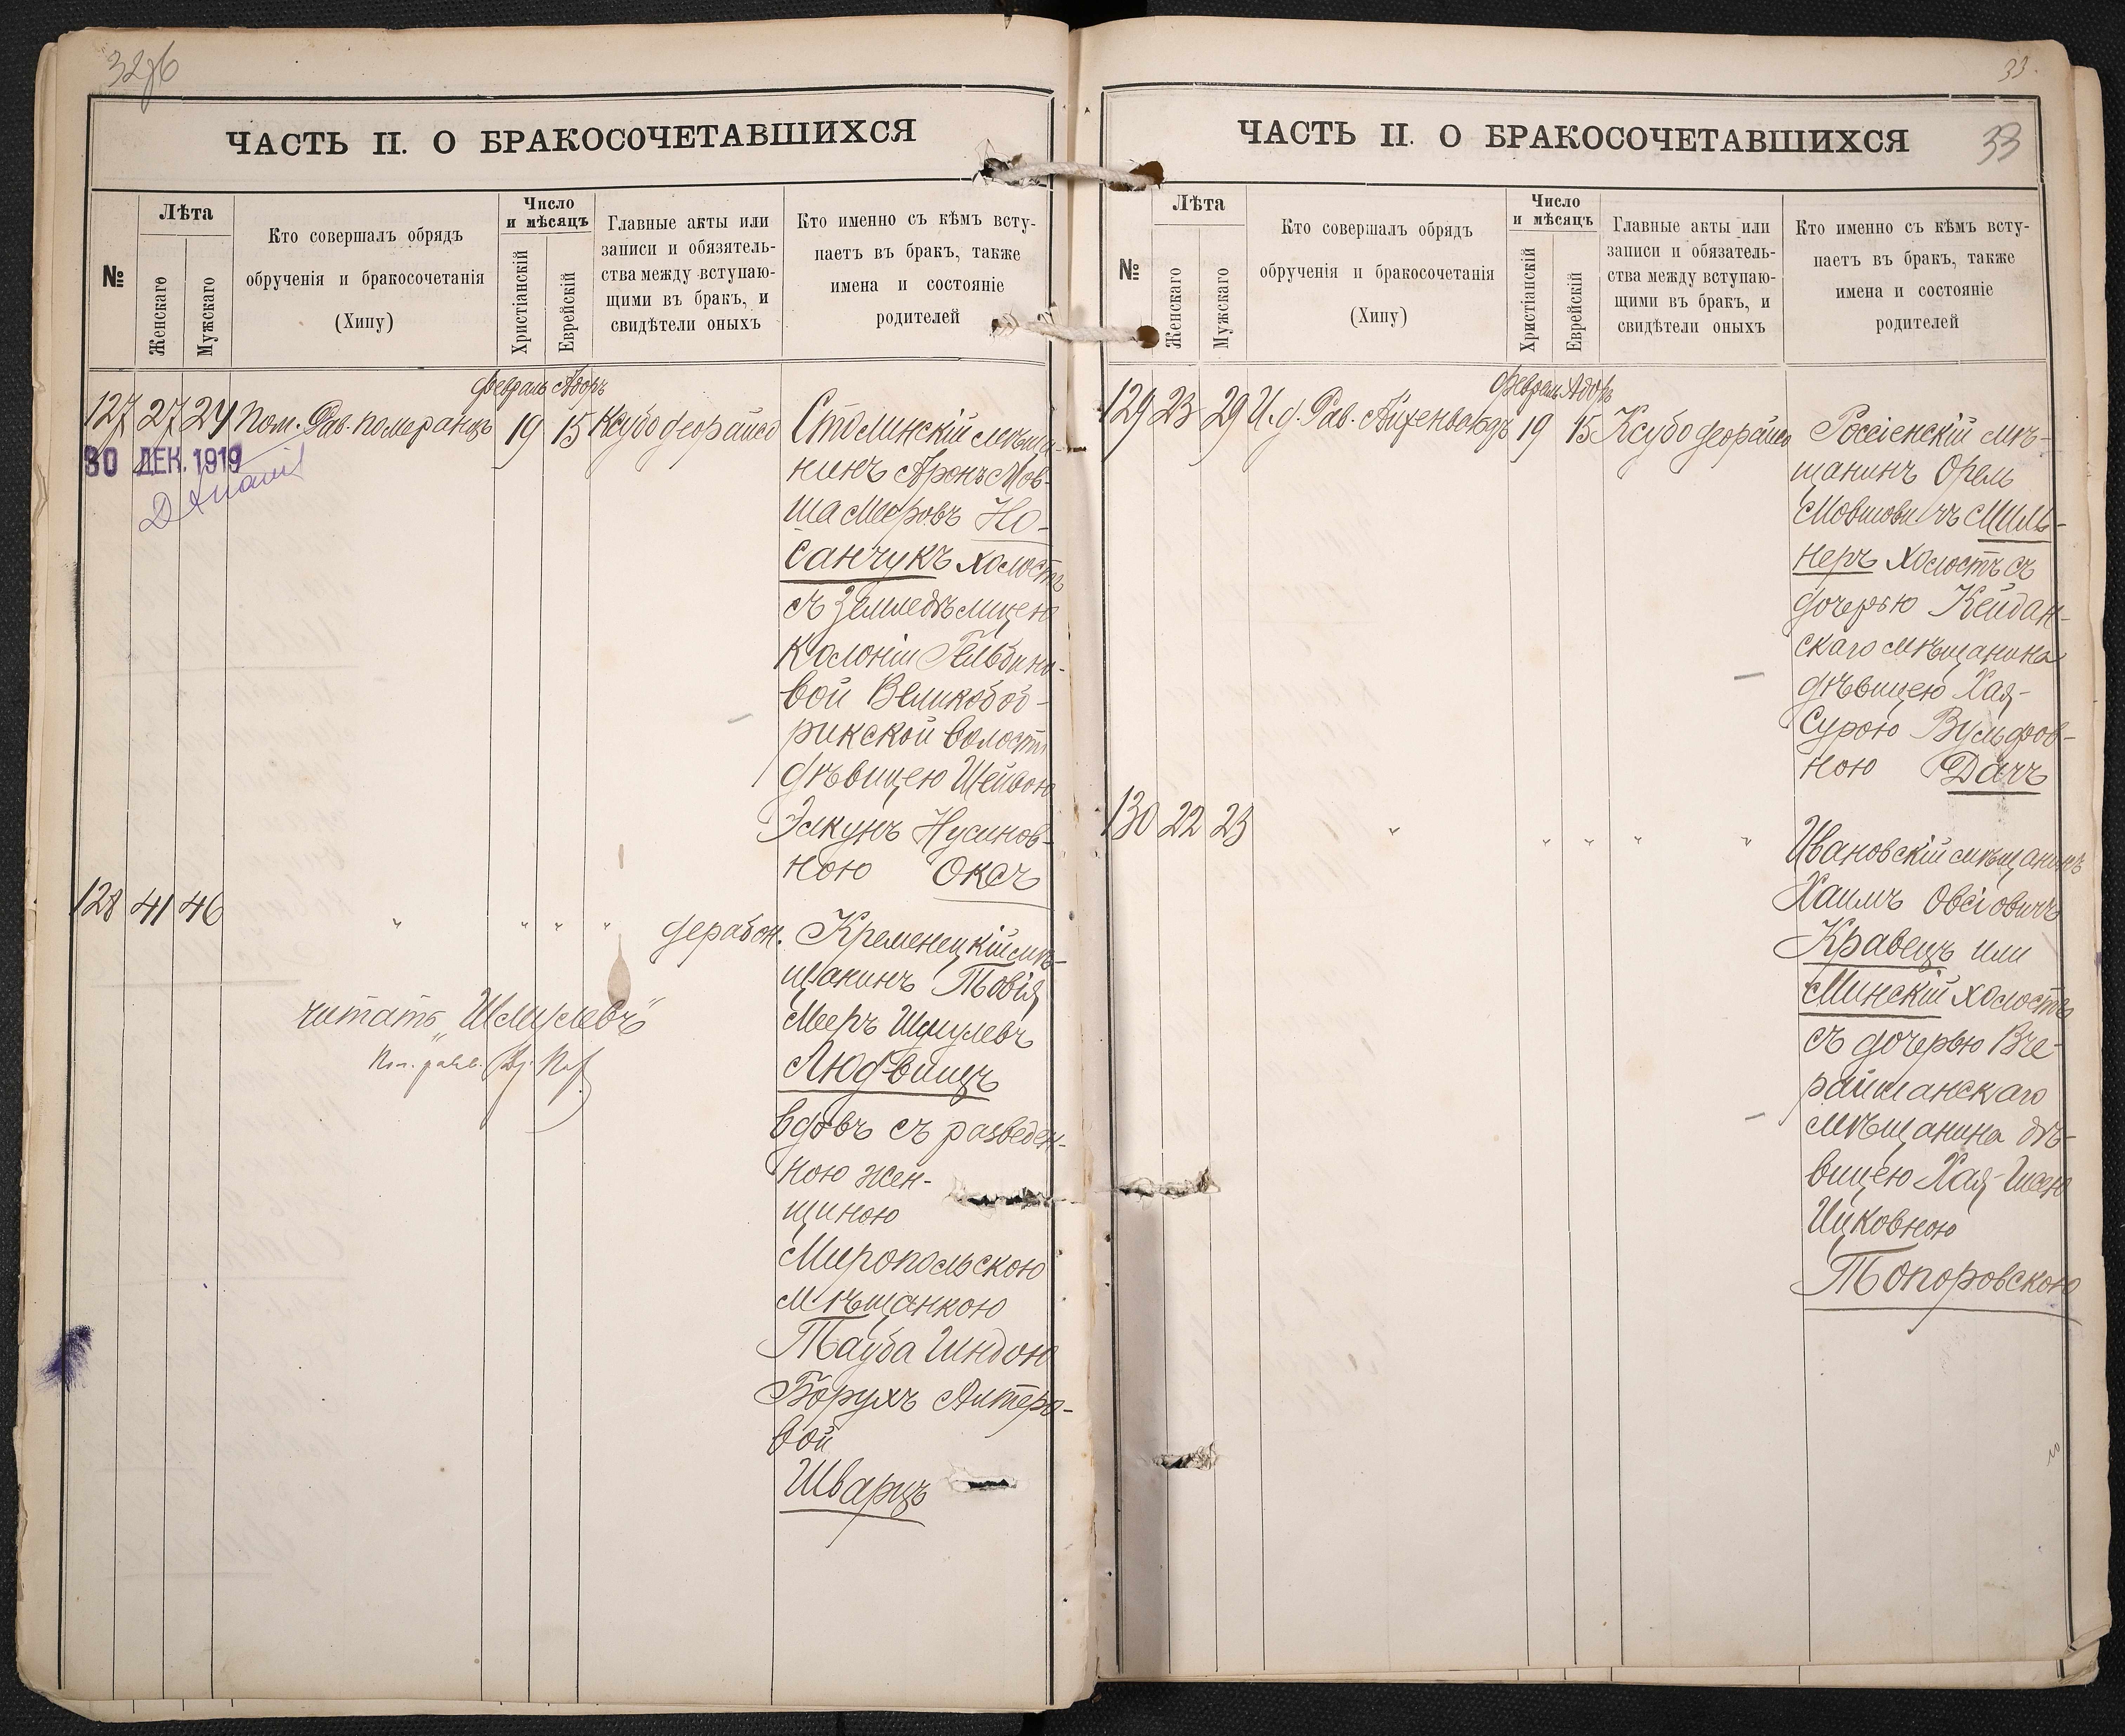 32об
ЧАСТЬ II. О БРАКОСОЧЕТАВШИХСЯ
№
Лѣта
Женскаго
Мужскаго
Кто совершалъ обрядъ
обрученія и бракосочетанія
(Хипу)
Число
и мѣсяцъ
Христіанскій
Еврейскій
Главные акты или
записи и обязатель-
ства между вступаю-
щими въ бракъ, и
свидѣтели оныхъ
Кто именно съ кѣмъ всту-
паетъ въ бракъ, также
имена и состояніе
родителей
Февраль Адоръ
127 27 24 Пом. Рав. Померанцъ 19 15 Ксубо деорайсо
30 ДЕК. 1919
Столинскій мѣща-
нинъ Аронъ Мов-
ша Мееровъ Но-
санчукъ холостъ
съ земледѣлицею
колоніи Гильбино-
вой Великобоб-
рикской волости
дѣвицею Шейвою
Элкунъ Нусинов-
ною Оксъ
128 41 46 " " " " дерабон.
Кременецкій мѣ-
щанинъ Товія
Мееръ Шмулевъ
Людвицъ
вдовъ съ разведен-
ною жен-
щиною
Миропольскою
мѣщанкою
Тауба Индою
Борухъ Алтеро-
вой
Шварцъ
читать „Шмулевъ"
33.
33
ЧАСТЬ II. О БРАКОСОЧЕТАВШИХСЯ
№
Лѣта
Женскаго
Мужскаго
Кто совершалъ обрядъ
обрученія и бракосочетанія
(Хипу)
Число
и мѣсяцъ
Христіанскій
Еврейскій
Главные акты или
записи и обязатель-
ства между вступаю-
щими въ бракъ, и
свидѣтели оныхъ
Кто именно съ кѣмъ всту-
паетъ въ бракъ, также
имена и состояніе
родителей
Февраль Адоръ
129 23 29 И. д. Рав. Айхенвальдъ 19 15 Ксубо деорайсо
Россіенскій мѣ-
щанинъ Орель
Мовшовичъ Миль-
неръ холостъ съ
дочерью Кейдан-
скаго мѣщанина
дѣвицею Хая-
Сурою Вульфов-
ною Дачъ
130 22 23 " " " " "
Ивановскій мѣщанинъ
Хаимъ Овсіовичъ
Кравецъ или
Минскій холостъ
съ дочерью Вче-
райшанскаго
мѣщанина дѣ-
вицею Хая-Шею
Ициковною
Топоровскою